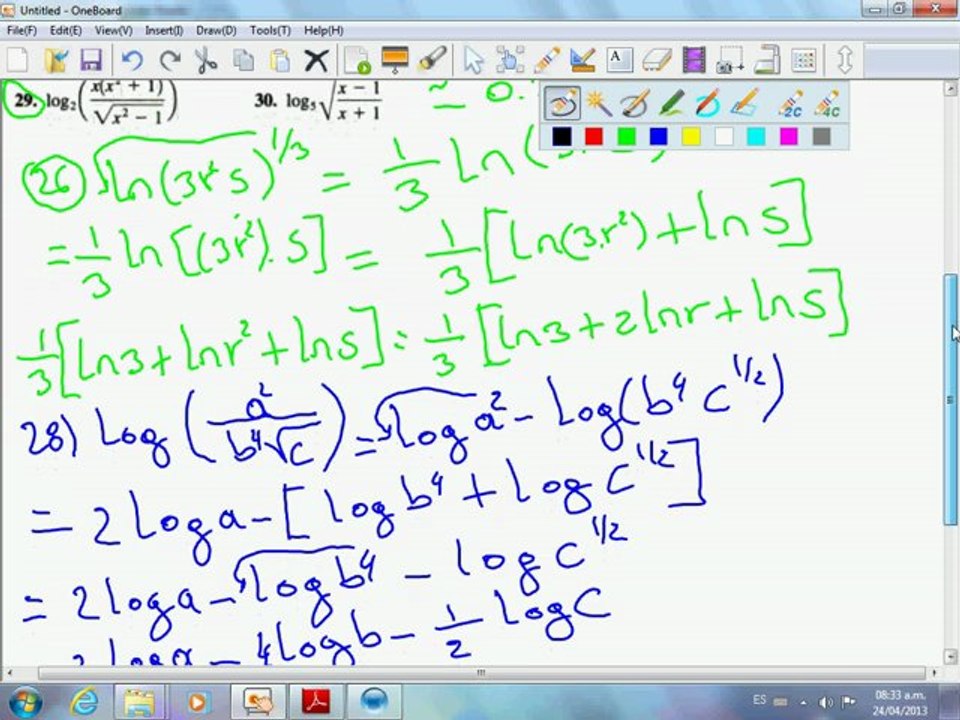 Untitled - OneBoard
File(F) Edit(E) View(V) Insert(I) Draw(D) Tools(T) Help(H)
29. log₂(x(x² + 1)/√(x² − 1)) 30. log₅√((x − 1)/(x + 1)) ≃ 0.
2C 4C
26 ln(3r²s)^1/3 = 1/3 ln(
= 1/3 ln[(3r²).S] = 1/3 [ln(3.r²) + ln S]
1/3 [ln3 + lnr² + lnS] = 1/3 [ln3 + 2lnr + lnS]
28) log(a²/(b⁴√c)) = log a² - log(b⁴ c^1/2)
= 2loga - [logb⁴ + logc^1/2]
= 2loga - logb⁴ - logc^1/2
2loga - 4logb - 1/2 logC
ES 08:33 a.m.
24/04/2013